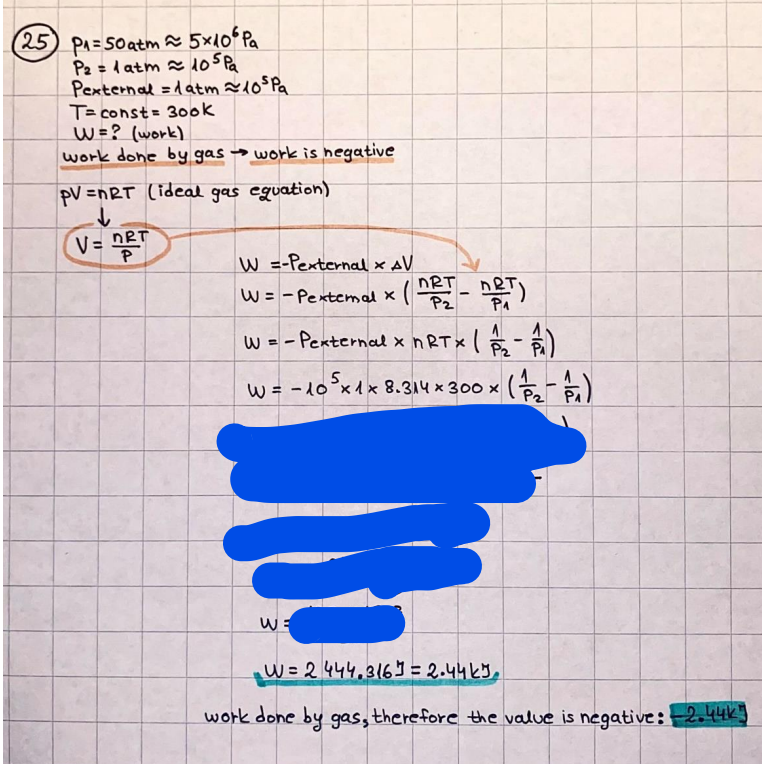 25 P1 = 50atm ≈ 5×10⁶ Pa
P2 = 1atm ≈ 10⁵ Pa
Pexternal = 1atm ≈ 10⁵ Pa
T = const = 300K
W = ? (work)
work done by gas → work is negative
pV = nRT (ideal gas equation)
↓
V = nRT/P
W = -Pexternal × ΔV
W = - Pexternal × (nRT/P2 - nRT/P1)
W = - Pexternal × nRT × (1/P2 - 1/P1)
W = -10⁵ × 1 × 8.314 × 300 × (1/P2 - 1/P1)
W =
W = 2 444.316J = 2.44kJ
work done by gas, therefore the value is negative: -2.44kJ